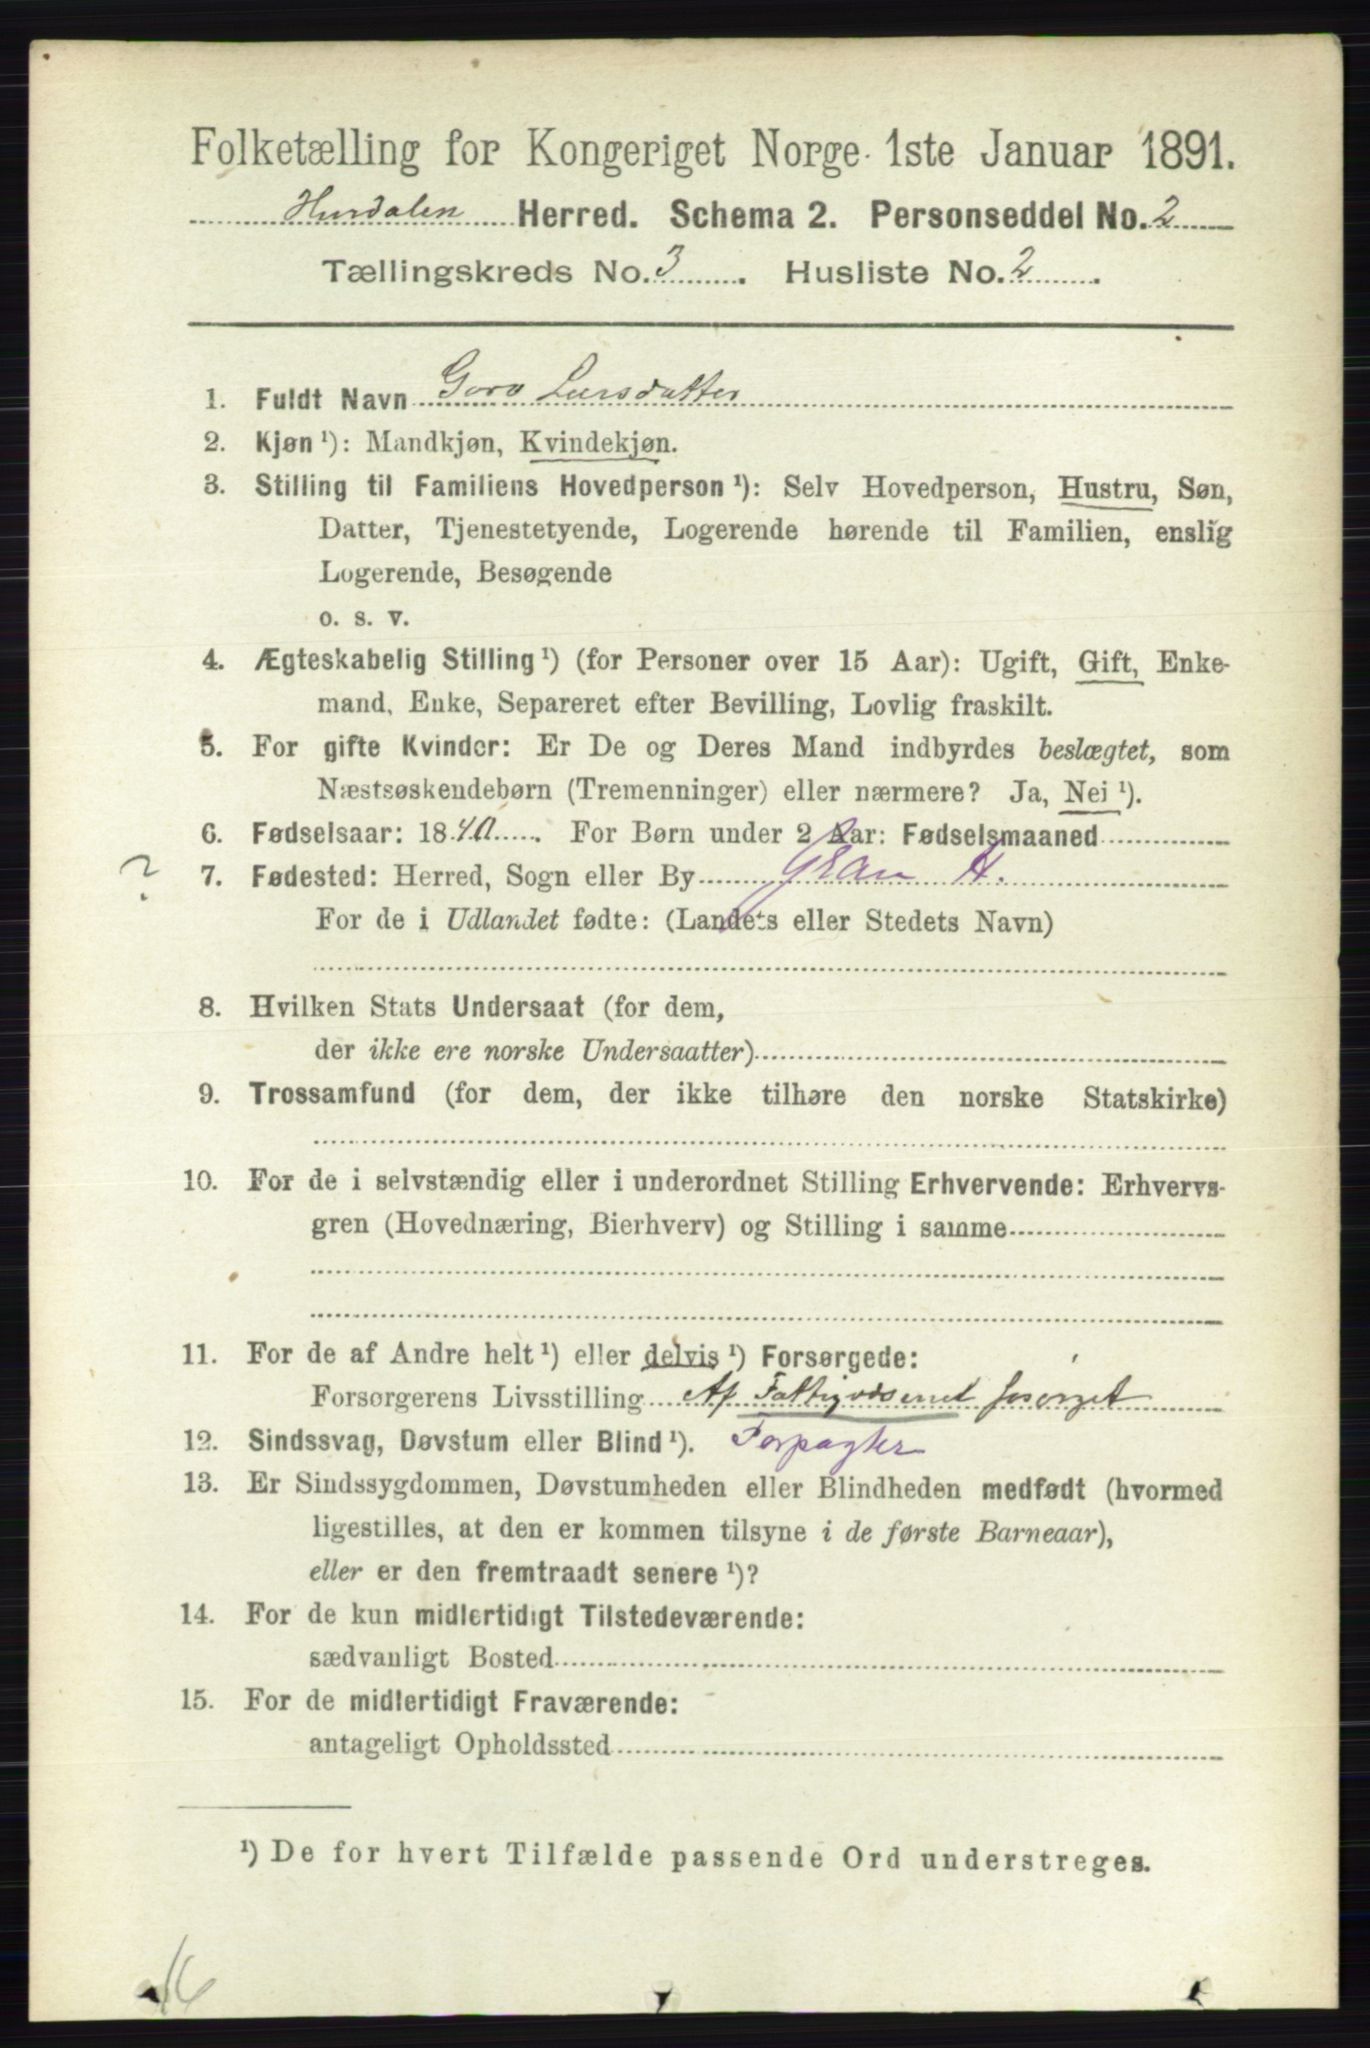 Folketælling for Kongeriget Norge 1ste Januar 1891.
Hurdalen Herred. Schema 2. Personseddel No. 2
Tællingskreds No. 3. Husliste No. 2.
1. Fuldt Navn Goro Larsdatter
2. Kjøn ¹): Mandkjøn, Kvindekjøn.
3. Stilling til Familiens Hovedperson ¹): Selv Hovedperson, Hustru, Søn,
Datter, Tjenestetyende, Logerende hørende til Familien, enslig
Logerende, Besøgende
o. s. v.
4. Ægteskabelig Stilling ¹) (for Personer over 15 Aar): Ugift, Gift, Enke-
mand, Enke, Separeret efter Bevilling, Lovlig fraskilt.
5. For gifte Kvinder: Er De og Deres Mand indbyrdes beslægtet, som
Næstsøskendebørn (Tremenninger) eller nærmere? Ja, Nei ¹).
6. Fødselsaar: 1840. For Børn under 2 Aar: Fødselsmaaned
? 7. Fødested: Herred, Sogn eller By Gran H.
For de i Udlandet fødte: (Landets eller Stedets Navn)
8. Hvilken Stats Undersaat (for dem,
der ikke ere norske Undersaatter)
9. Trossamfund (for dem, der ikke tilhøre den norske Statskirke)
10. For de i selvstændig eller i underordnet Stilling Erhvervende: Erhvervs-
gren (Hovednæring, Bierhverv) og Stilling i samme
11. For de af Andre helt ¹) eller delvis ¹) Forsørgede:
Forsørgerens Livsstilling Af Fattigvæsenet forsørget
12. Sindssvag, Døvstum eller Blind ¹). Forpagter
13. Er Sindssygdommen, Døvstumheden eller Blindheden medfødt (hvormed
ligestilles, at den er kommen tilsyne i de første Barneaar),
eller er den fremtraadt senere ¹)?
14. For de kun midlertidigt Tilstedeværende:
sædvanligt Bosted
15. For de midlertidigt Fraværende:
antageligt Opholdssted
¹) De for hvert Tilfælde passende Ord understreges.